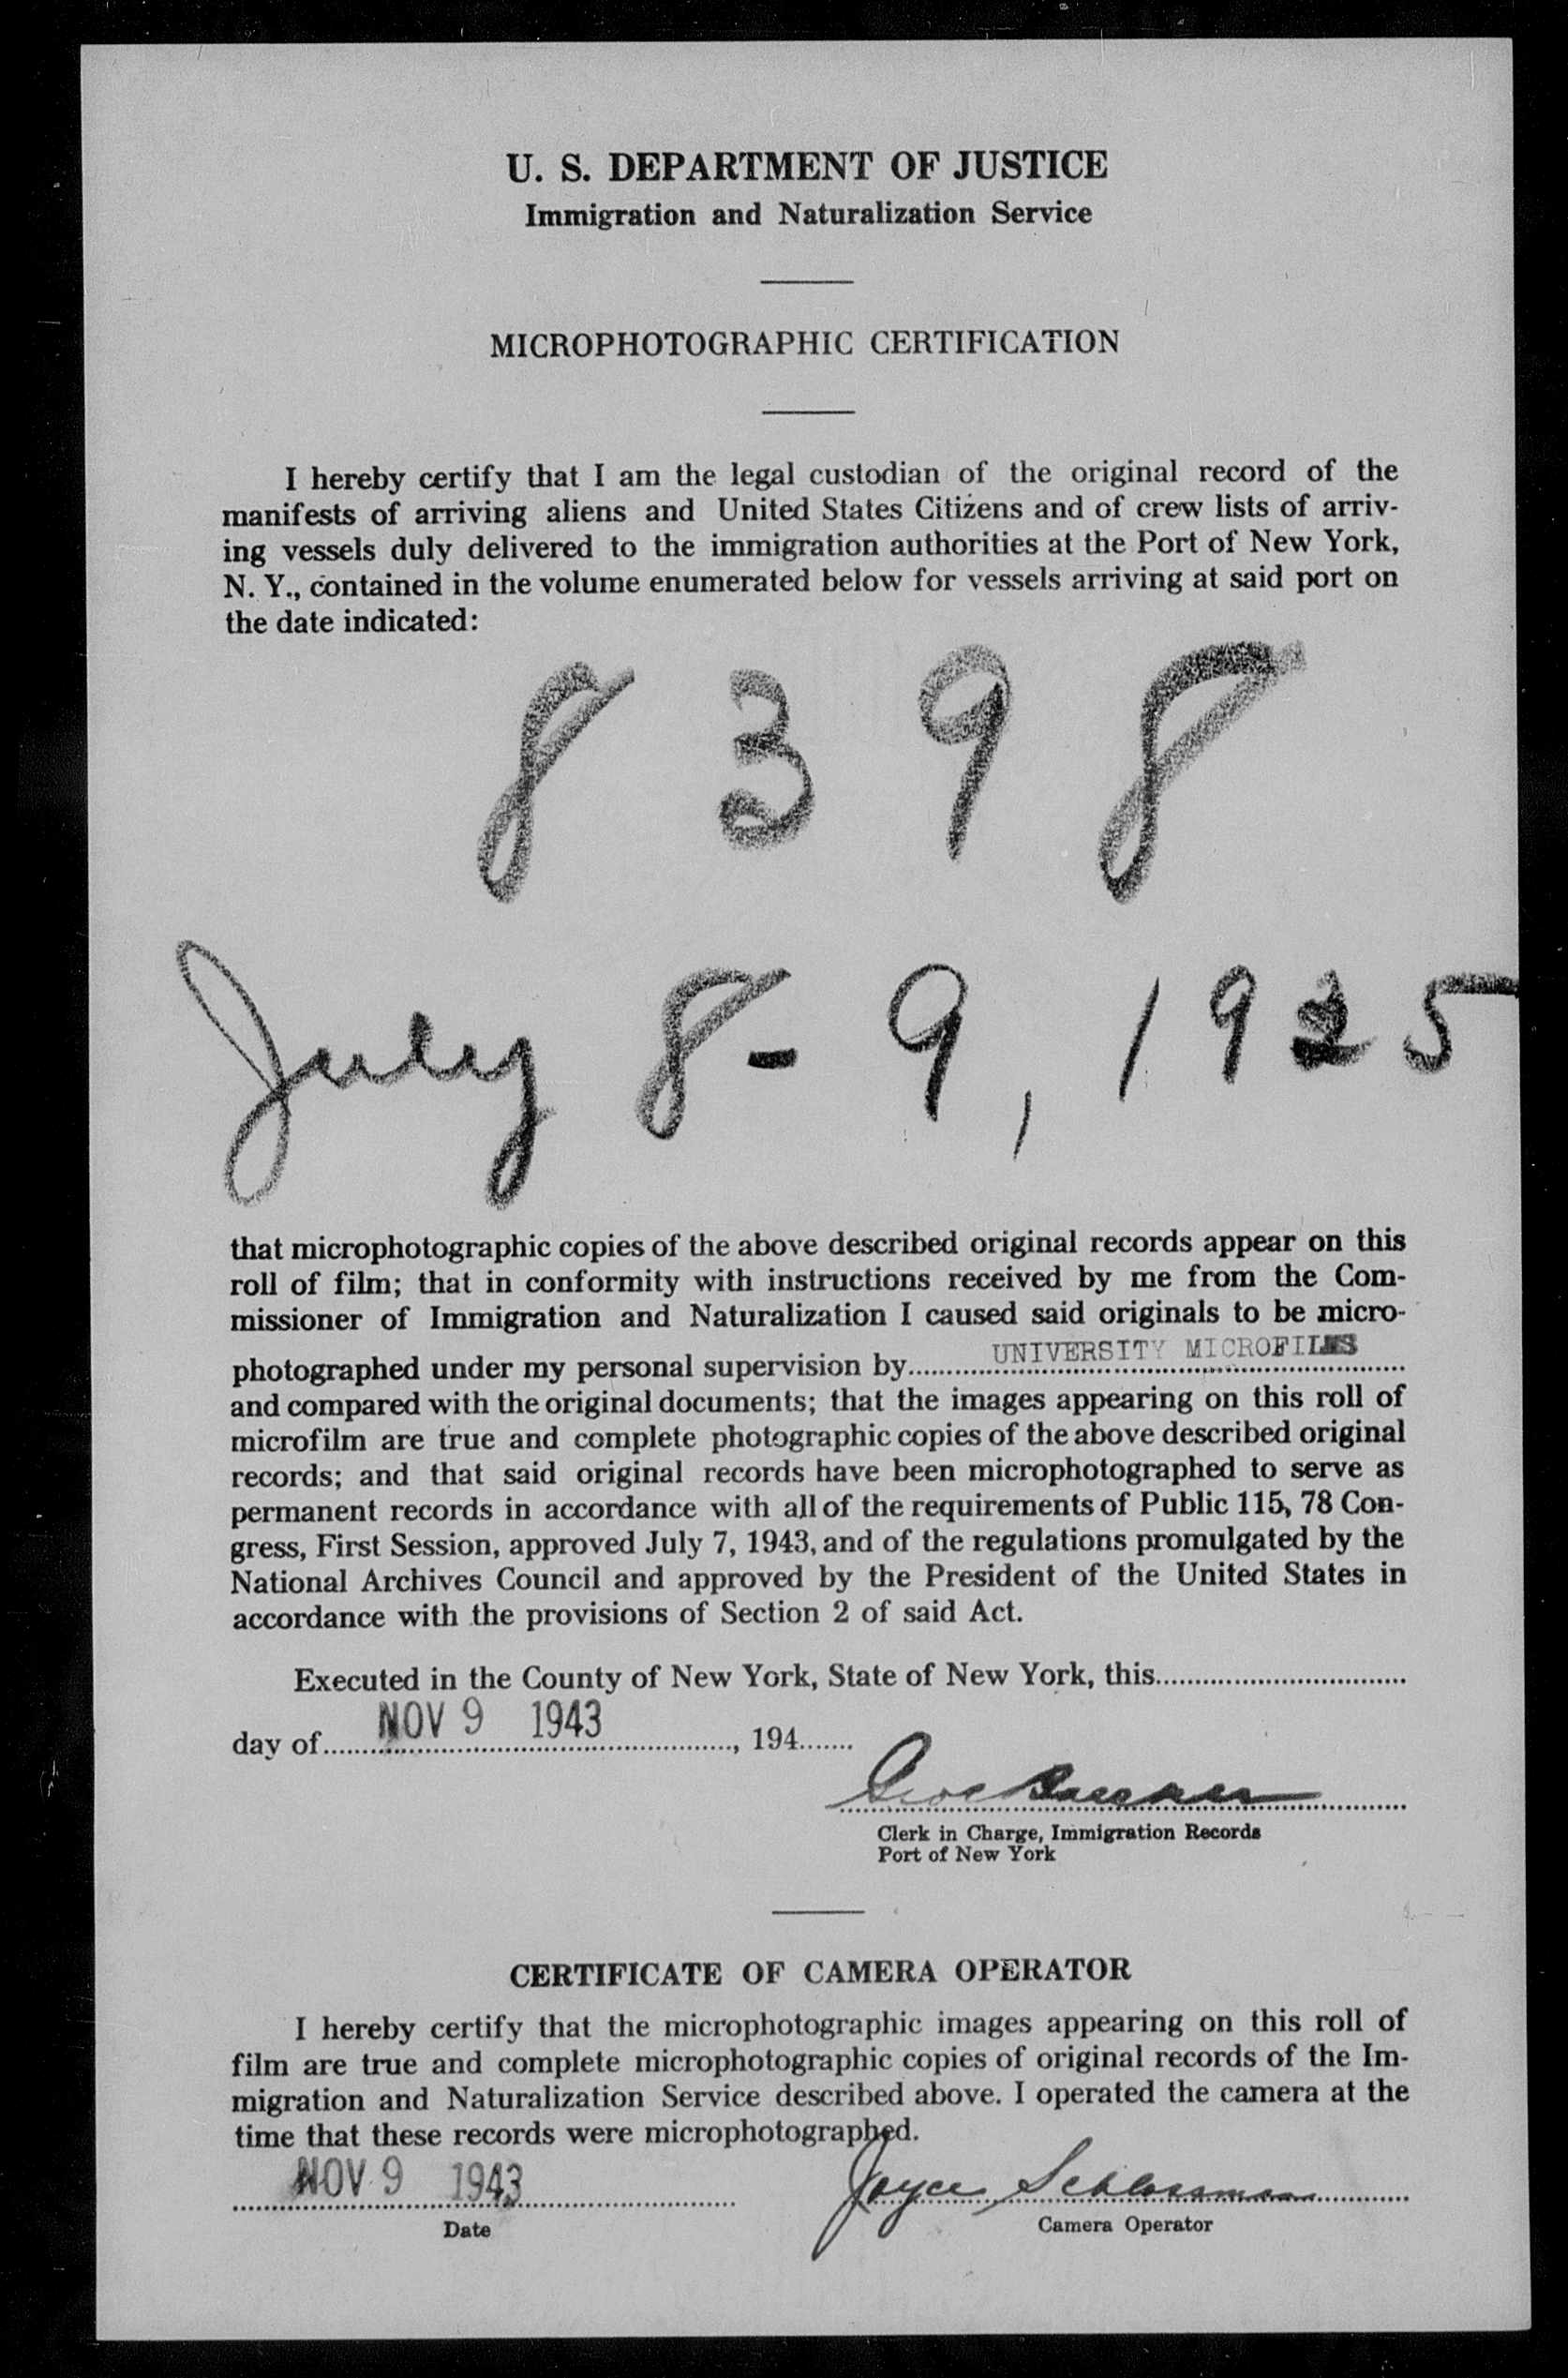 U. S. DEPARTMENT OF JUSTICE
Immigration and Naturalization Service
MICROPHOTOGRAPHIC CERTIFICATION
I hereby certify that I am the legal custodian of the original record of the
manifests of arriving aliens and United States Citizens and of crew lists of arriv-
ing vessels duly delivered to the immigration authorities at the Port of New York,
N. Y., contained in the volume enumerated below for vessels arriving at said port on
the date indicated:
8398
July 8-9, 1925
that microphotographic copies of the above described original records appear on this
roll of film; that in conformity with instructions received by me from the Com-
missioner of Immigration and Naturalization I caused said originals to be micro-
photographed under my personal supervision by UNIVERSITY MICROFILMS
and compared with the original documents; that the images appearing on this roll of
microfilm are true and complete photographic copies of the above described original
records; and that said original records have been microphotographed to serve as
permanent records in accordance with all of the requirements of Public 115, 78 Con-
gress, First Session, approved July 7, 1943, and of the regulations promulgated by the
National Archives Council and approved by the President of the United States in
accordance with the provisions of Section 2 of said Act.
Executed in the County of New York, State of New York, this
day of NOV 9 1943, 194
Clerk in Charge, Immigration Records
Port of New York
CERTIFICATE OF CAMERA OPERATOR
I hereby certify that the microphotographic images appearing on this roll of
film are true and complete microphotographic copies of original records of the Im-
migration and Naturalization Service described above. I operated the camera at the
time that these records were microphotographed.
NOV 9 1943 Joyce Schlossman
Date Camera Operator